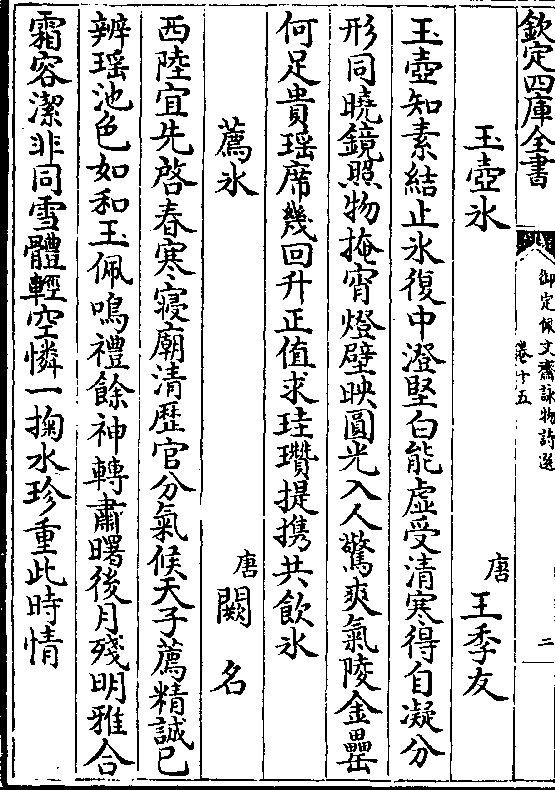 欽定四庫全書
御定佩文齋詠物詩選
卷十五
二
玉壺氷
唐 王季友
玉壺知素結止氷復中澄堅白能虚受清寒得自凝分
形同曉鏡照物掩宵燈壁映圓光入人驚爽氣陵金罍
何足貴瑶席幾回升正值求珪瓚提携共飲氷
薦氷
唐 闕名
西陸宜先啓春寒寝廟清歴官分氣候天子薦精誠已
辨瑶池色如和玉佩鳴禮餘神轉肅曙後月殘明雅合
霜容潔非同雪體輕空憐一掬水珍重此時情